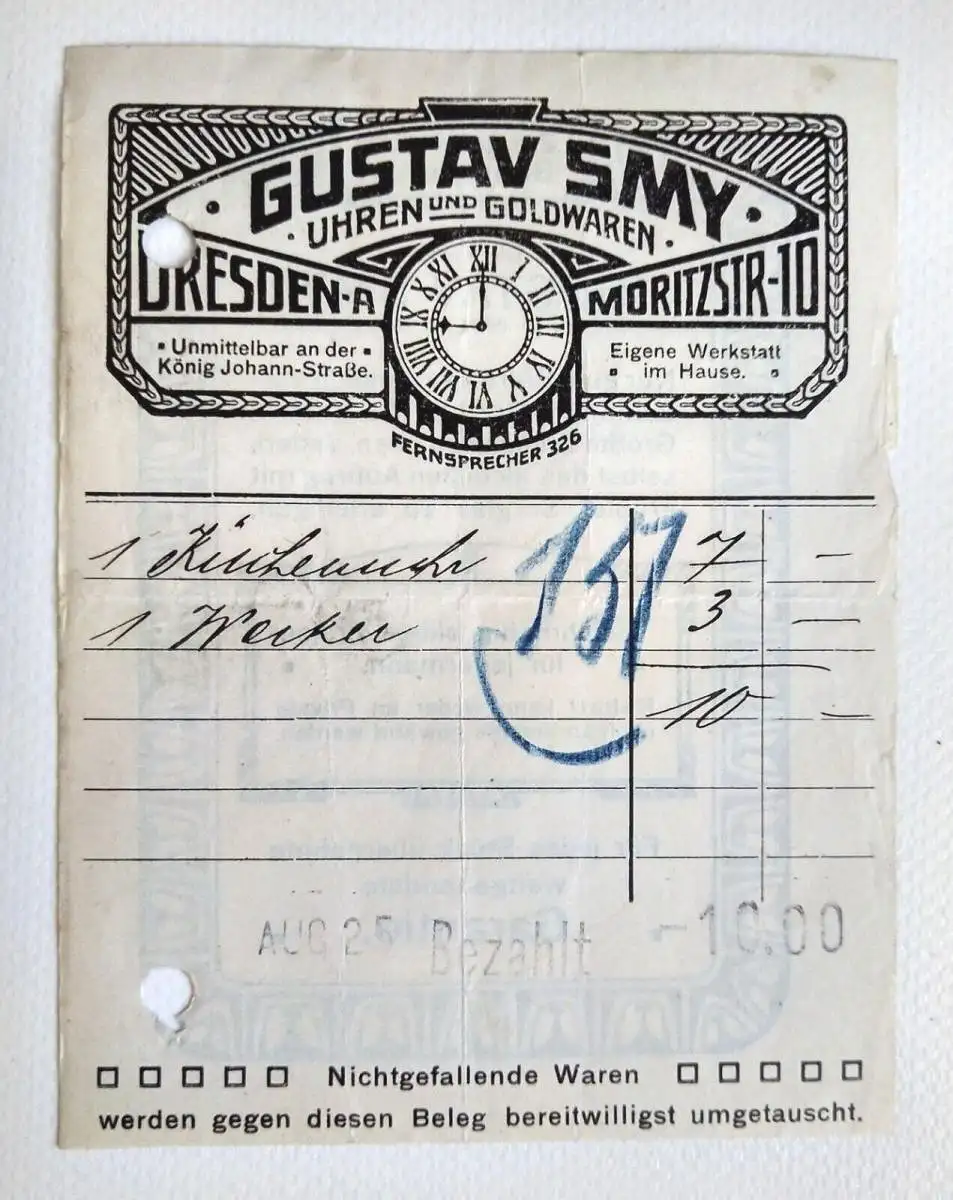 GUSTAV SMY
UHREN UND GOLDWAREN
DRESDEN-A
MORITZSTR-10
XII I II III IV V VI VII VIII IX X XI
Unmittelbar an der
König Johann-Straße.
Eigene Werkstatt
im Hause.
FERNSPRECHER 326
1 Küchenuhr 7 —
1 Wecker 3 —
157
10 —
AUG 25 Bezahlt -10.00
Nichtgefallende Waren
werden gegen diesen Beleg bereitwilligst umgetauscht.